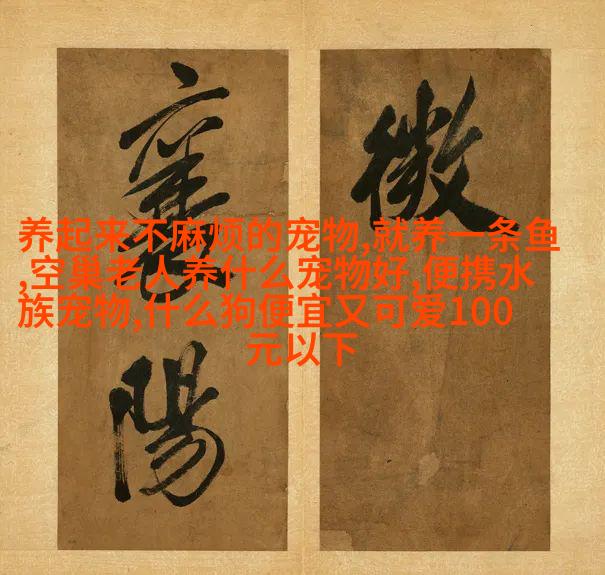 徽
襄陽
养起来不麻烦的宠物,就养一条鱼
,空巢老人养什么宠物好,便携水
族宠物,什么狗便宜又可爱100
元以下